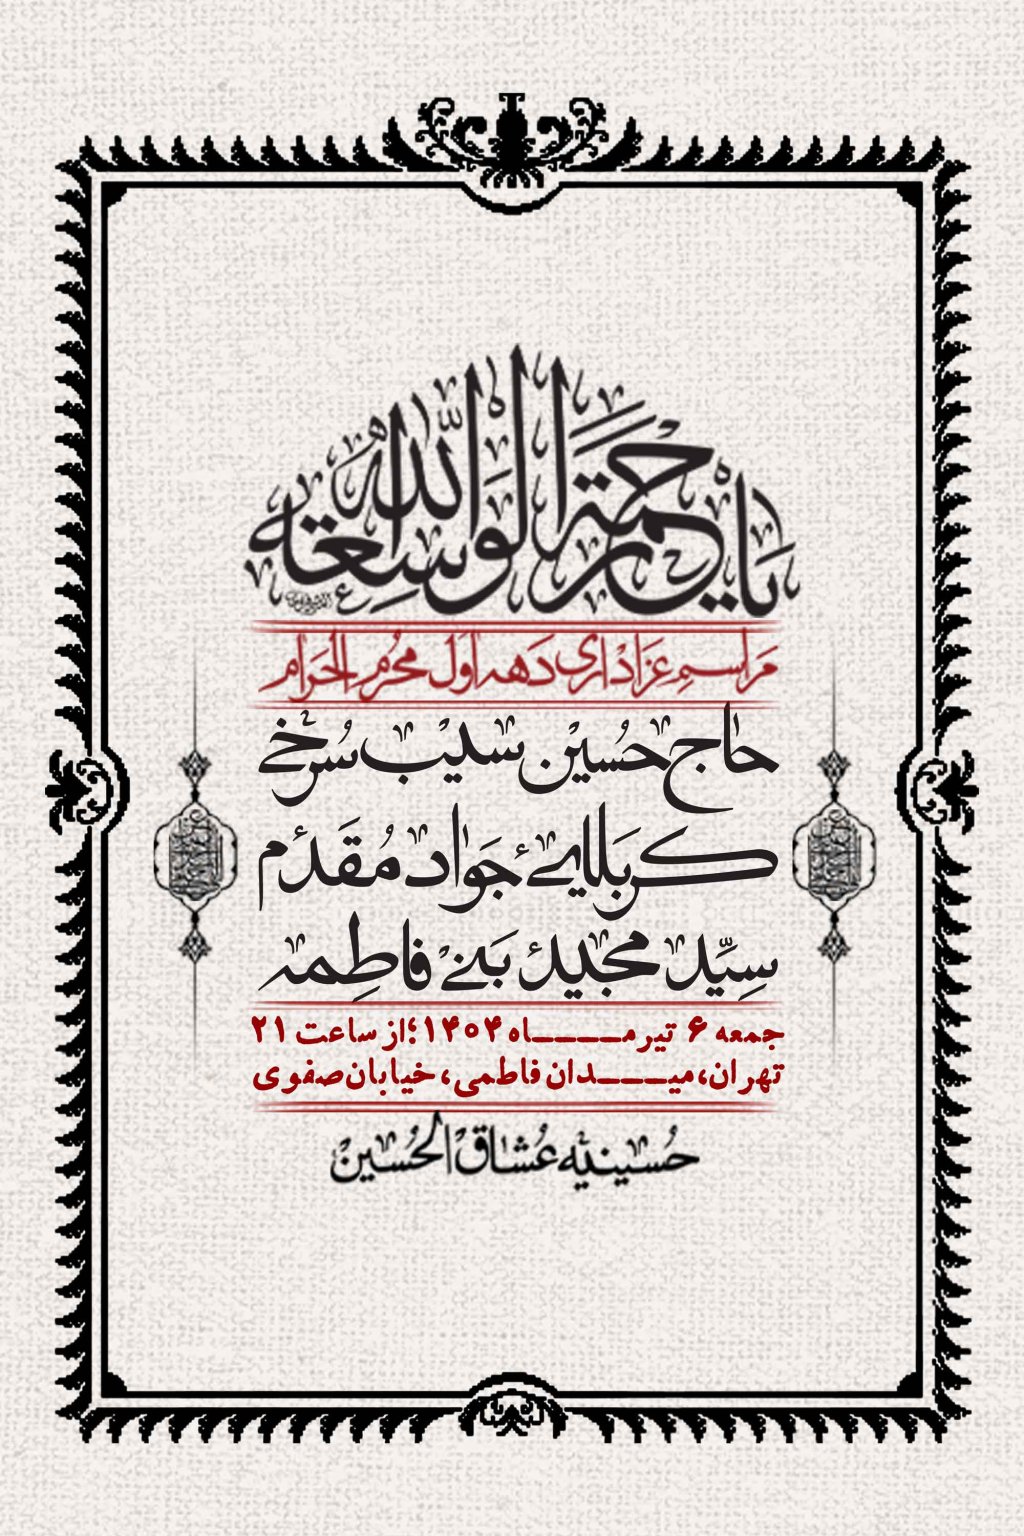 یا رحمة الله الواسعة
مراسم عزاداری دهه اول محرم الحرام
حاج حسین سیب سرخی
کربلایی جواد مقدم
سید مجید بنی فاطمه
جمعه ۶ تیرمــــاه ۱۴۰۴؛از ساعت ۲۱
تهران، میـــدان فاطمی، خیابان صفوی
حسینیه عشاق الحسین